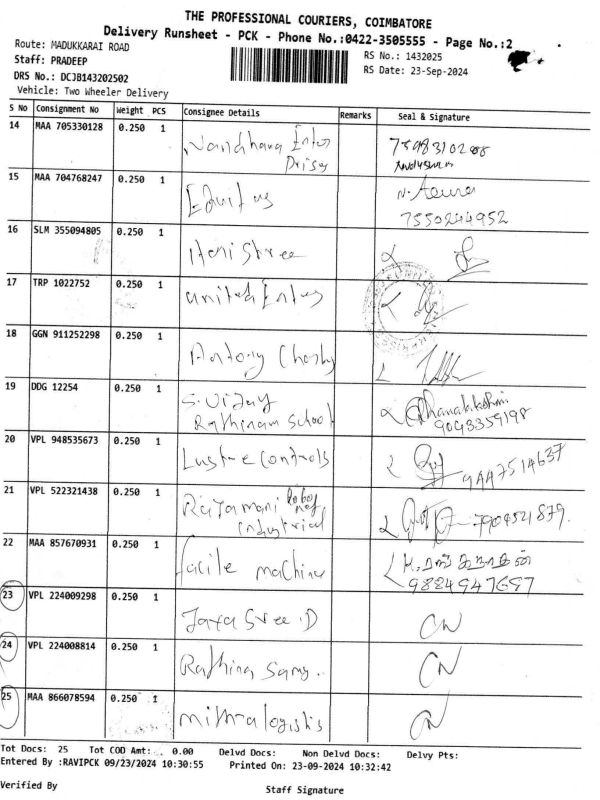 THE PROFESSIONAL COURIERS, COIMBATORE
Delivery Runsheet - PCK - Phone No.:0422-3505555 - Page No.:2
Route: MADUKKARAI ROAD
RS No.: 1432025
Staff: PRADEEP
RS Date: 23-Sep-2024
DRS No.: DCJB143202502
Vehicle: Two Wheeler Delivery
S No Consignment No Weight PCS Consignee Details Remarks Seal & Signature
14 MAA 705330128 0.250 1 Nandhana Enter
Prises
15 MAA 704768247 0.250 1 Equitas
7550244952
16 SLM 355094805 0.250 1 Hari Shree
17 TRP 1022752 0.250 1 United Enter
18 GGN 911252298 0.250 1 Antony
19 DDG 12254 0.250 1 S. Vijay
Rathinam School
9043359198
20 VPL 948535673 0.250 1 Lustre Controls
9447514637
21 VPL 522321438 0.250 1 Rajamani
industrial
7904521879
22 MAA 857670931 0.250 1 facile machine
9884947697
23 VPL 224009298 0.250 1 Jaya Sree.D
CN
24 VPL 224008814 0.250 1 Rathina Samy..
CN
25 MAA 866078594 0.250 1 mithra logistis
CN
Tot Docs: 25 Tot COD Amt: 0.00 Delvd Docs: Non Delvd Docs: Delvy Pts:
Entered By :RAVIPCK 09/23/2024 10:30:55 Printed On: 23-09-2024 10:32:42
Verified By
Staff Signature